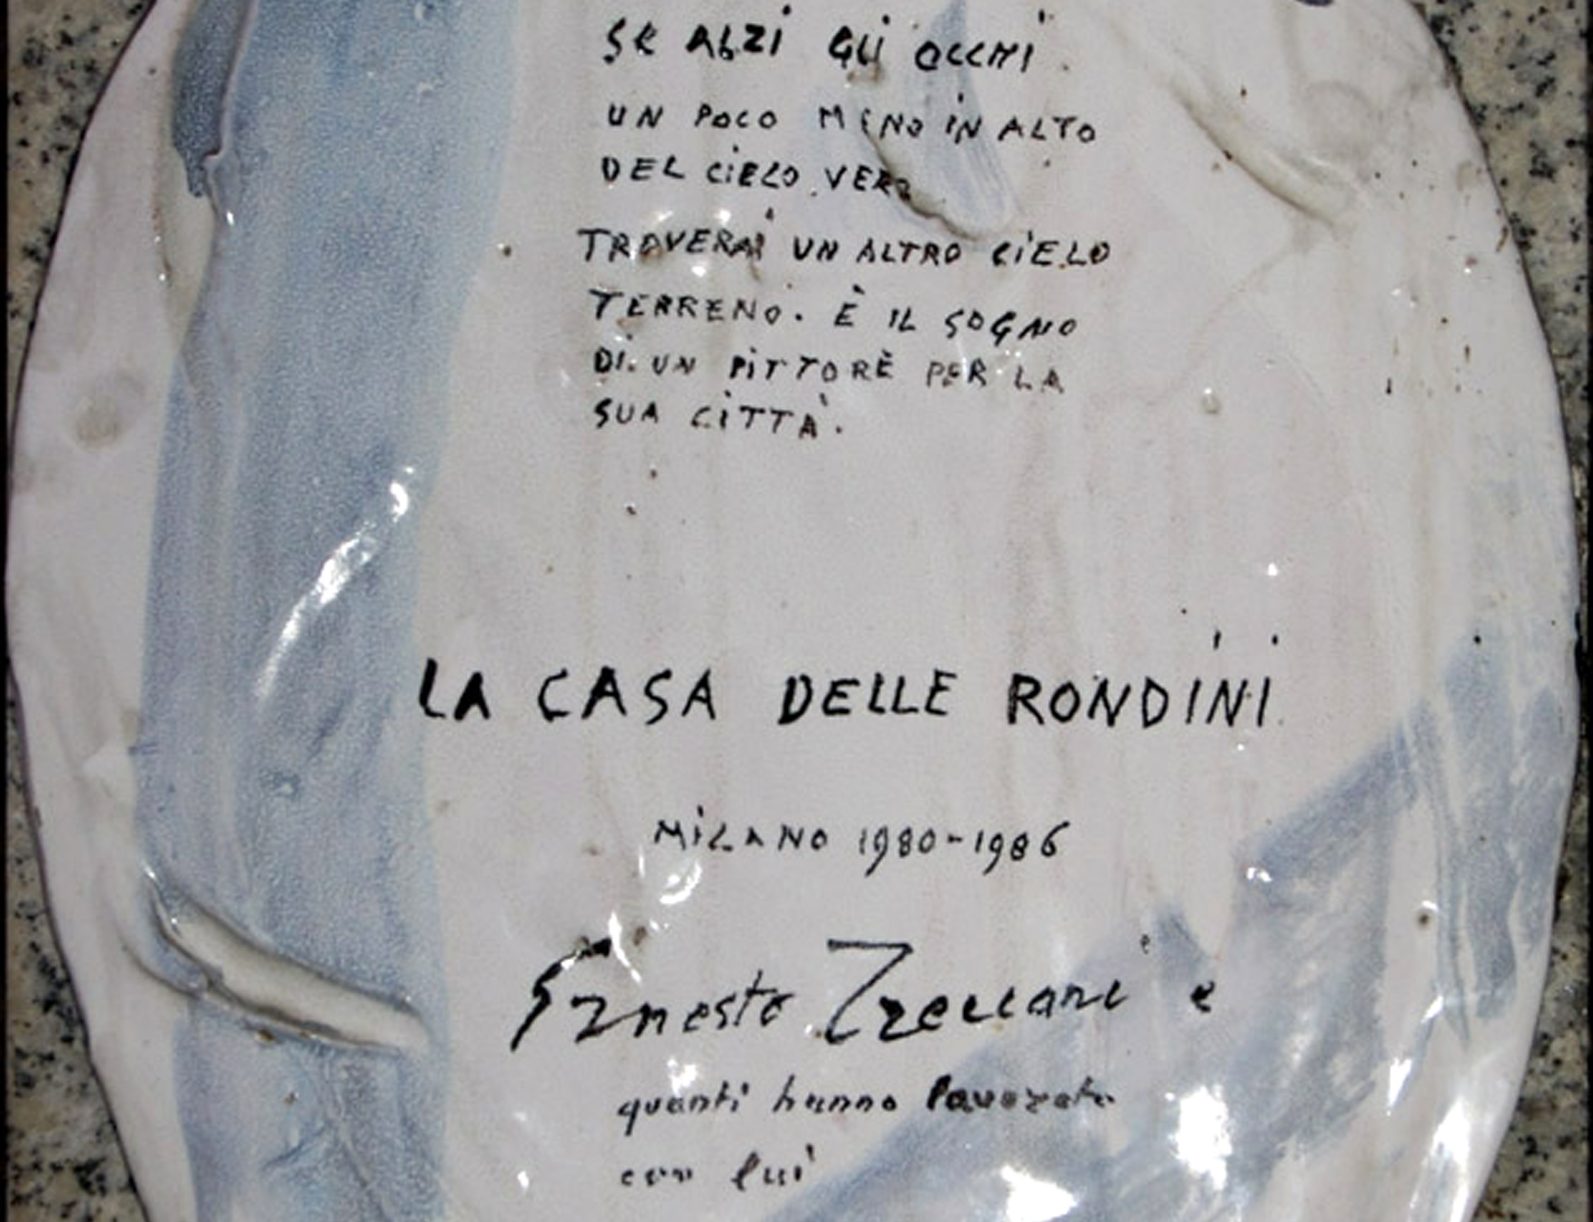 SE ALZI GLI OCCHI
UN POCO MENO IN ALTO
DEL CIELO VERO
TROVERAI UN ALTRO CIELO
TERRENO. È IL SOGNO
DI UN PITTORE PER LA
SUA CITTÀ.
LA CASA DELLE RONDINI
MILANO 1980-1986
Ernesto Treccani e
quanti hanno lavorato
con lui